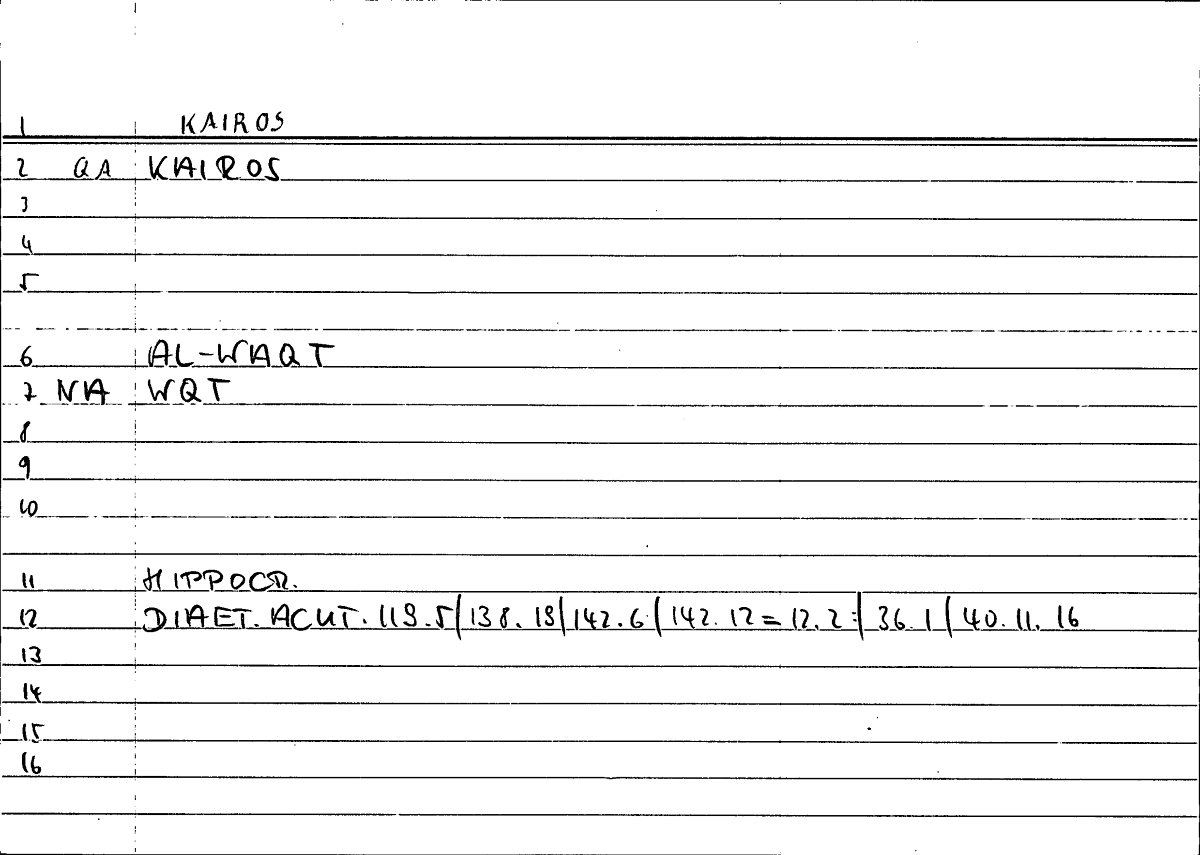 1 KAIROS
2 QA KAIROS
3
4
5
6 AL-WAQT
7 NA WQT
8
9
10
11 HIPPOCR.
12 DIAET. ACUT. 119.5/138.19/142.6/142.12=12.2:/36.1/40.11.16
13
14
15
16